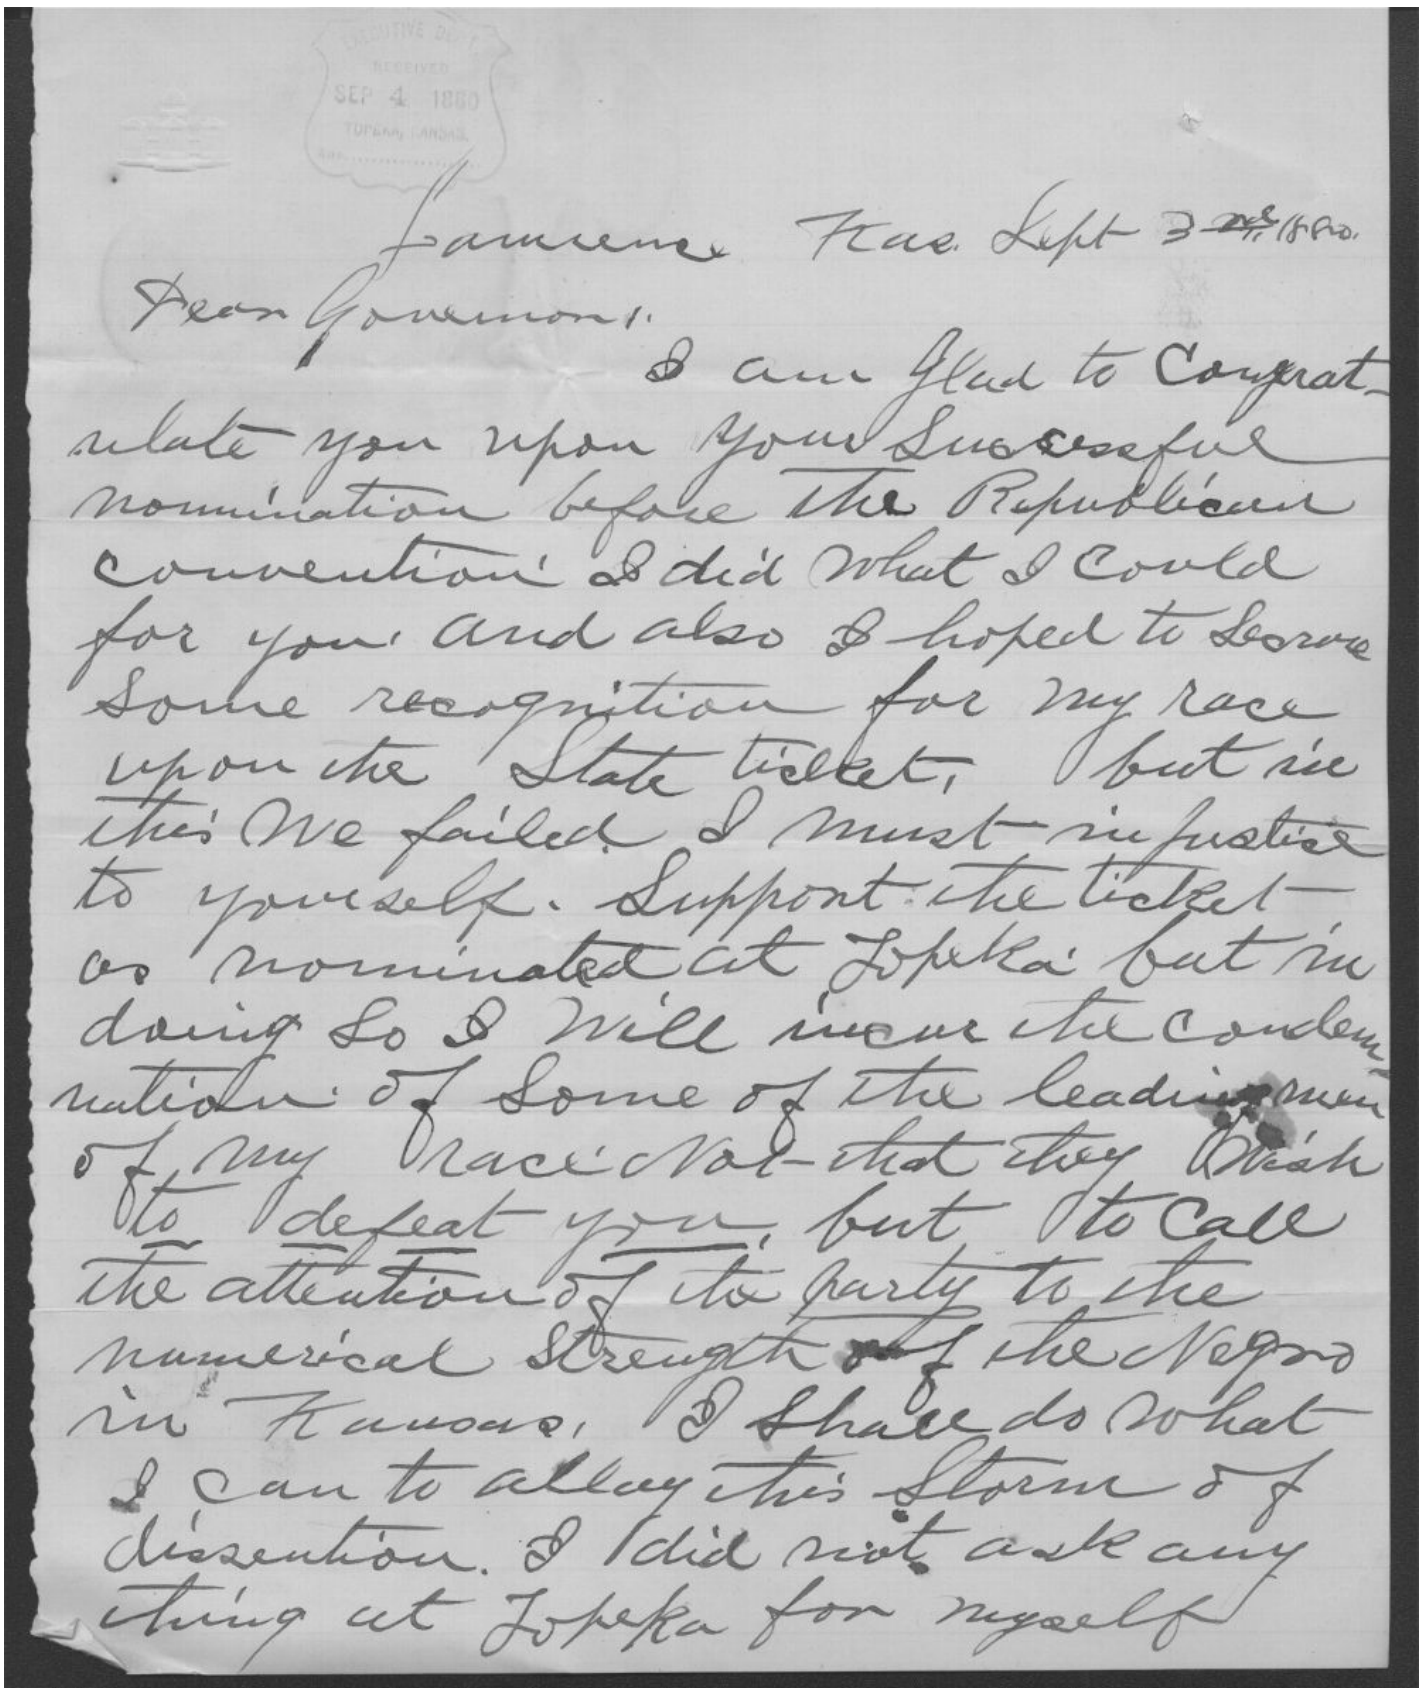 EXECUTIVE DEPT.
RECEIVED
SEP 4 1880
TOPEKA, KANSAS.
Lawrence Kas. Sept 3rd, 1880.
Dear Governor,:
I am Glad to Congrat-
ulate you upon your Successful
nomination before the Republican
convention I did what I could
for you. and also I hoped to Secure
Some recognition for my race
upon the State ticket, but in
this We failed. I must in justice
to yourself. Support the ticket
as nominated at Topeka but in
doing So I Will incur the Condem-
nation of Some of the leading men
of my race Not that they Wish
to defeat you, but to Call
the attention of the party to the
numerical Strength of the Negro
in Kansas. I Shall do What
I can to allay this Storm of
dissention. I did not ask any
thing at Topeka for myself